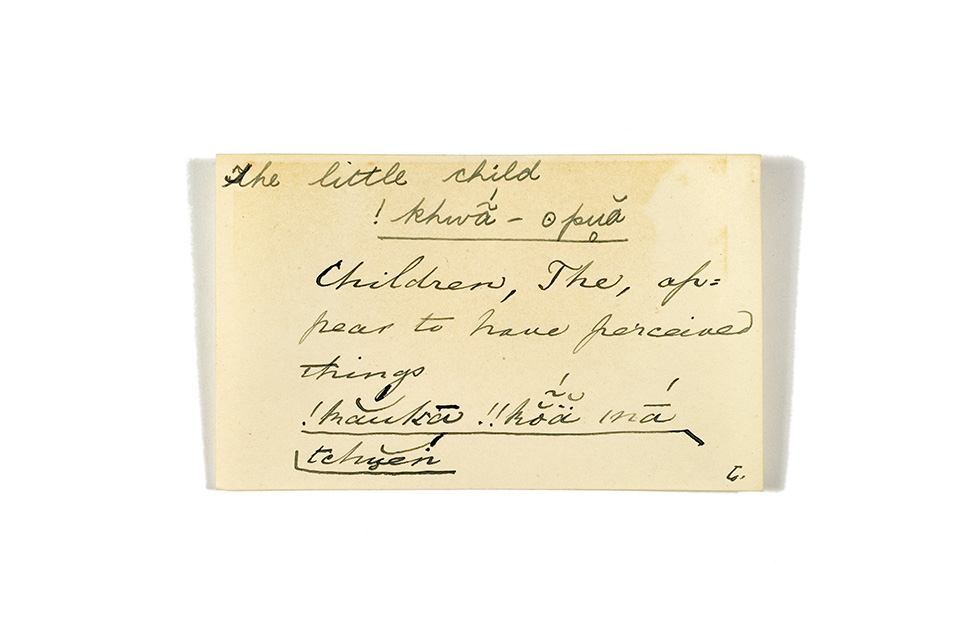 The little child
! khwã́ – ʘpu̥ă
Children, The, ap=
pear to have perceived
things
!kăukā !!kõ̆ä̆ ınā́
tchu̯ĕń